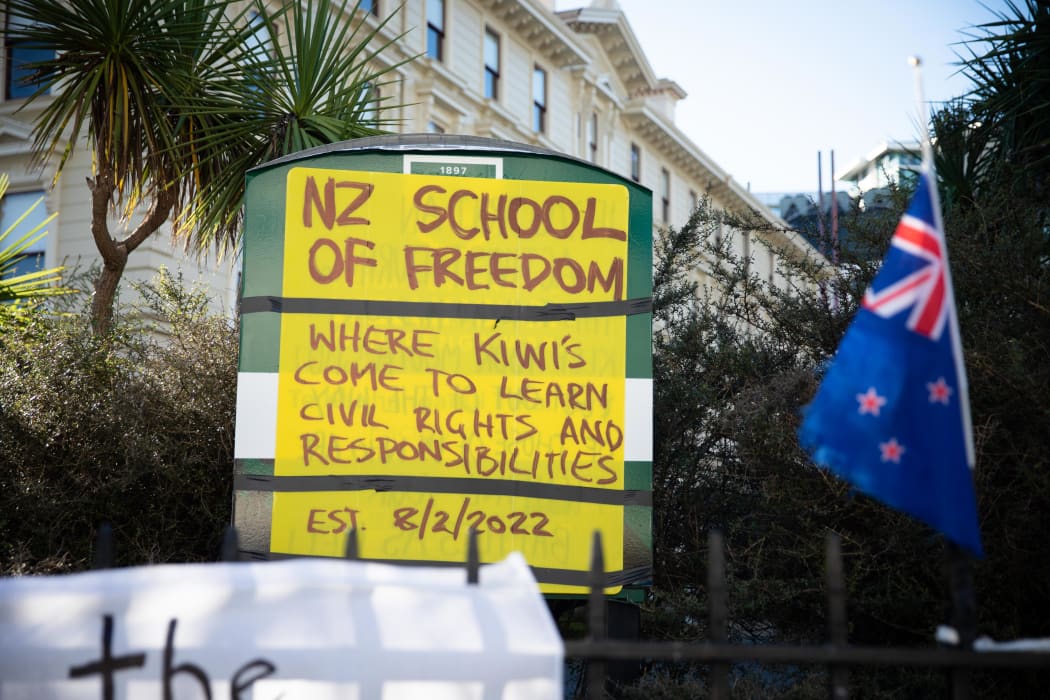 1897
NZ SCHOOL
OF FREEDOM
WHERE KIWI'S
COME TO LEARN
CIVIL RIGHTS AND
RESPONSIBILITIES
EST. 8/2/2022
the